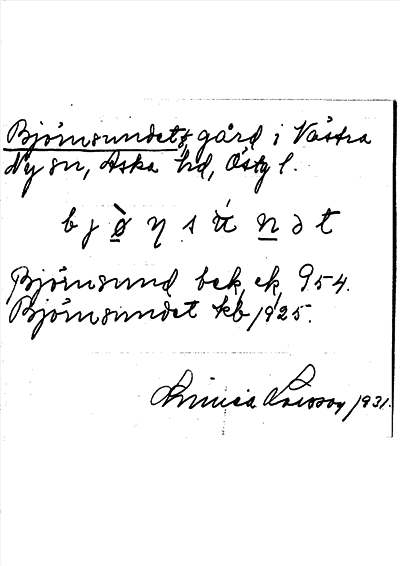 Björnsundet, gård i Västra
Ny sn, Aska hd, Östg l.
b j ø̀ η s ú n d t
Björnsund bek, ek, 954.
Björnsundet kb 1925.
Linnéa Larsson 1931.